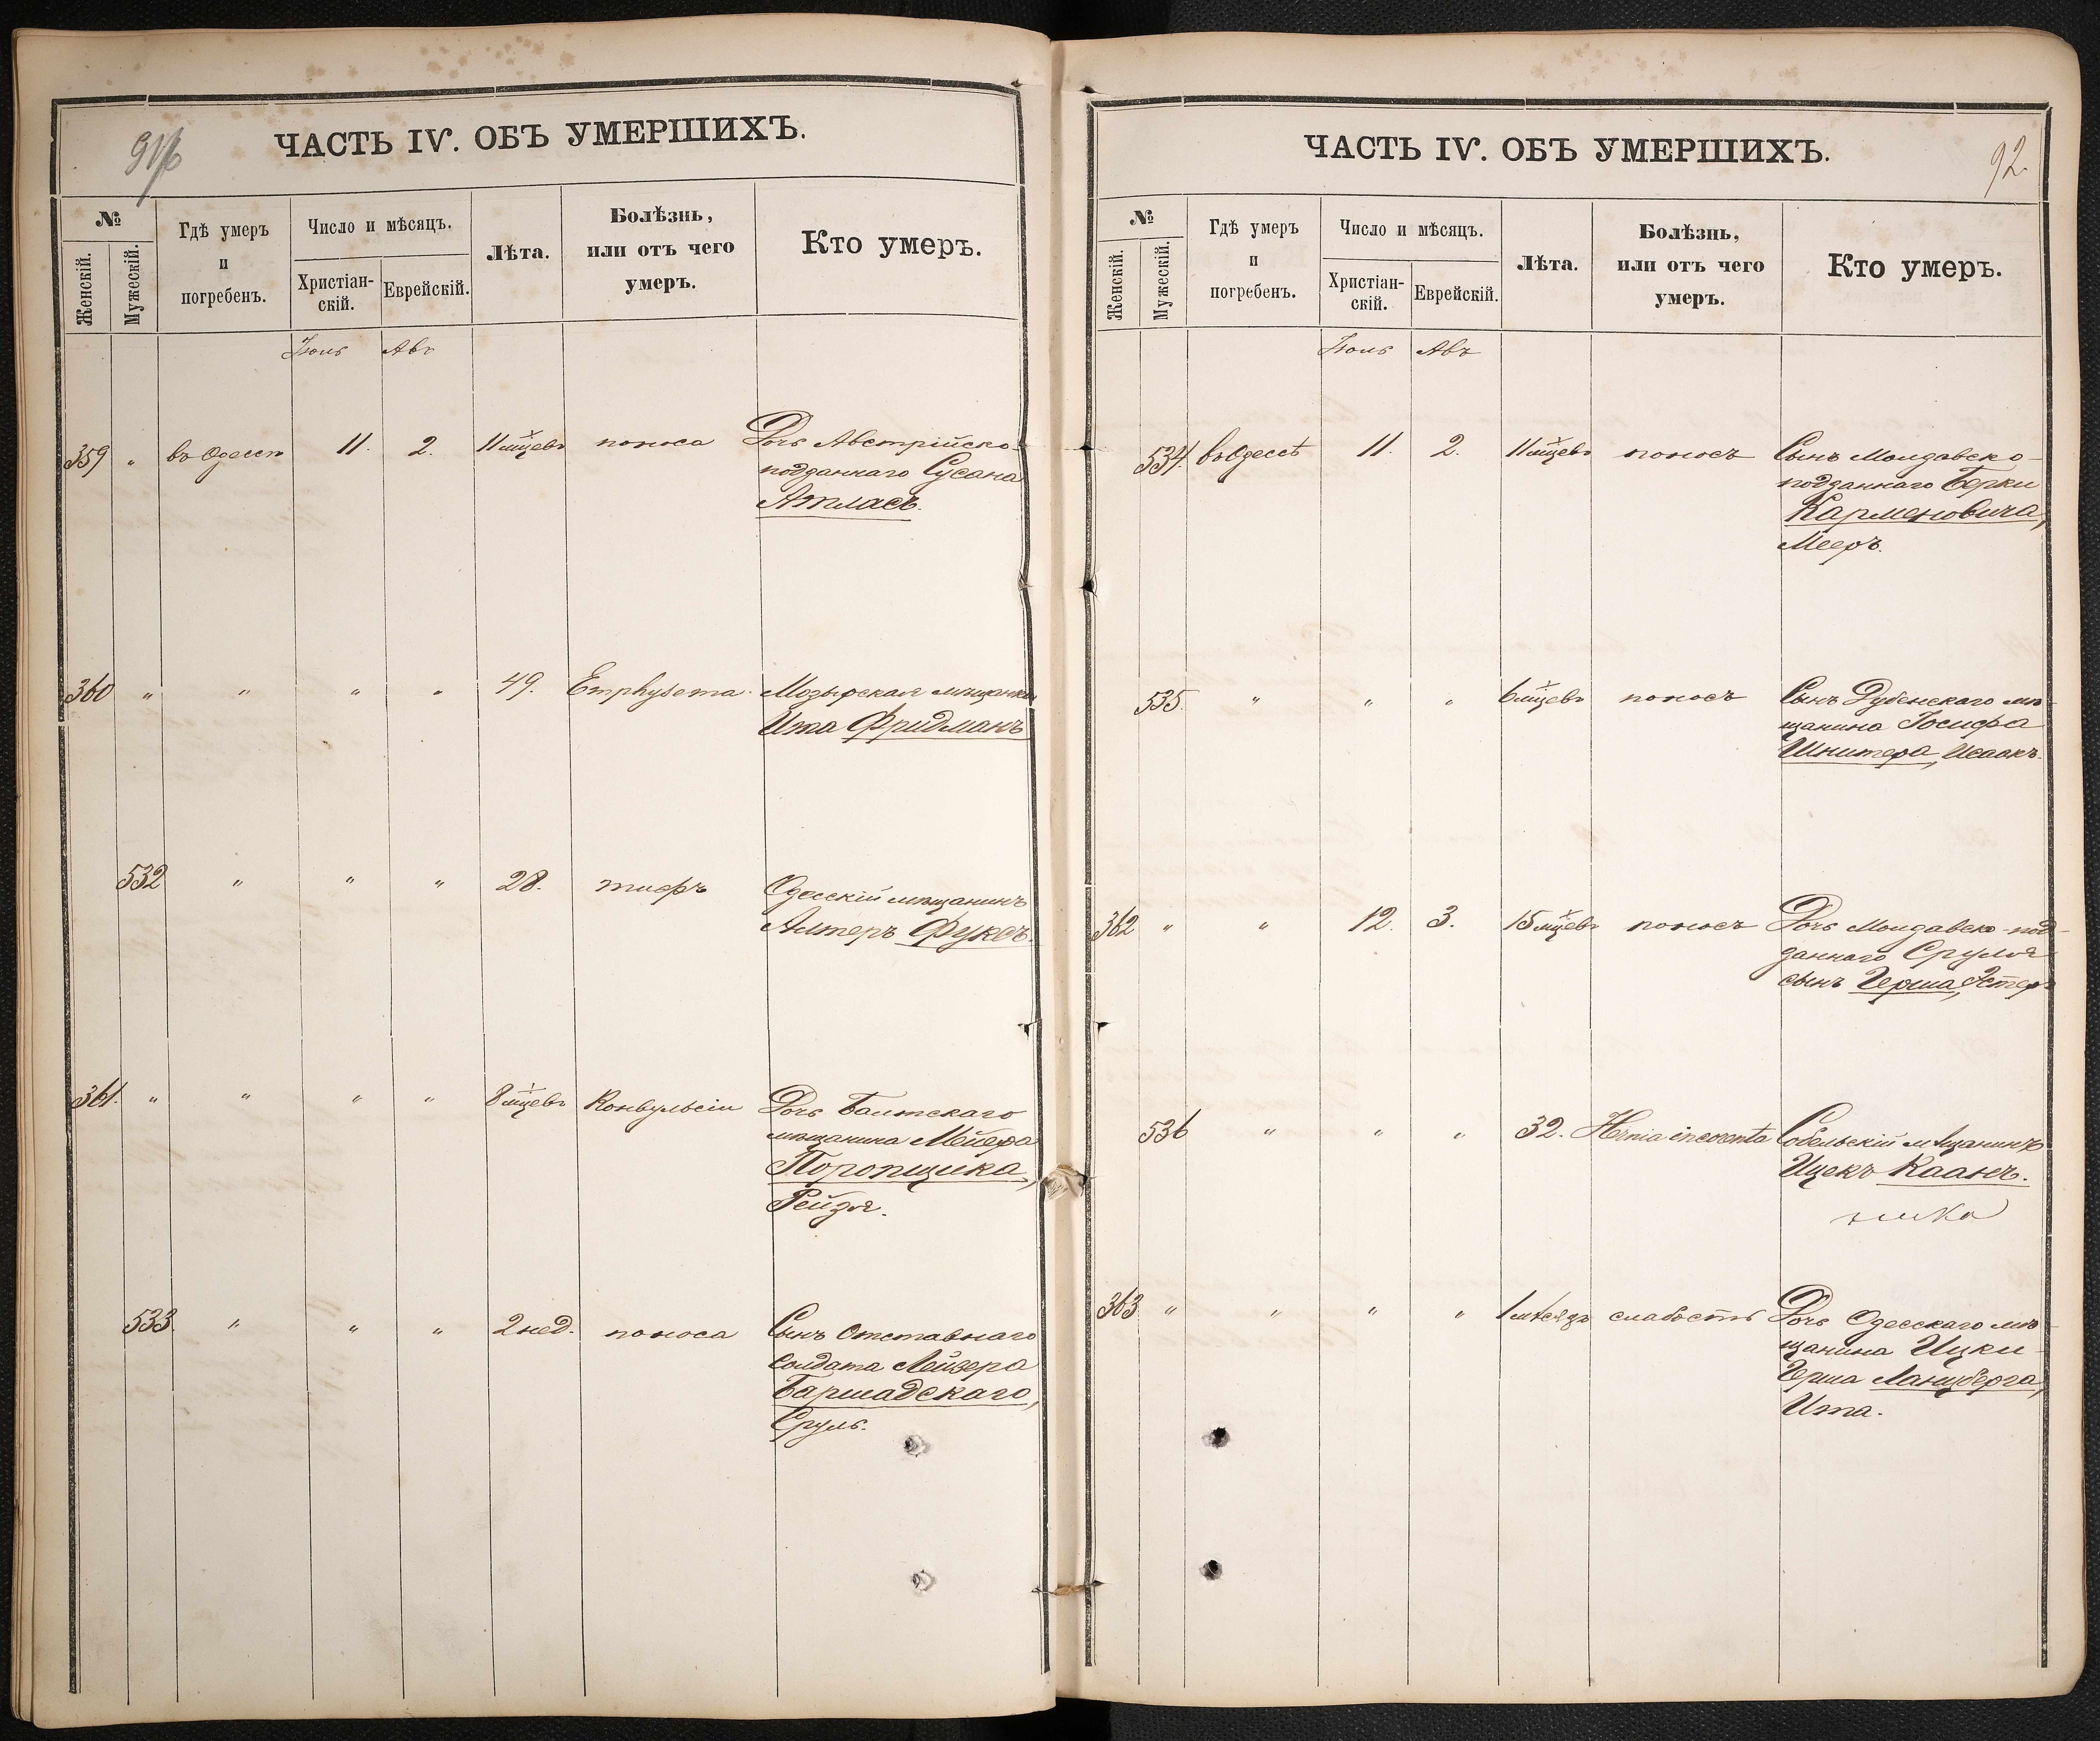 91/б
ЧАСТЬ IV. ОБЪ УМЕРШИХЪ.
№
Женскій.
Мужескій.
Гдѣ умеръ
и
погребенъ.
Число и мѣсяцъ.
Христіан-
скій.
Еврейскій.
Лѣта.
Болѣзнь,
или отъ чего
умеръ.
Кто умеръ.
Іюль Авъ
359 " въ Одессѣ 11. 2. 11 мцевъ поноса Дочь Австрійско-
подданнаго Сусана
Атласъ.
360 " " " " 49. Emphysema. Мозырская мѣщанка
Ита Фридманъ
532 " " " 28. тифъ Одесскій мѣщанинъ
Алтеръ Фуксъ.
361. " " " " 8 мцевъ Конвульсіи Дочь Балтскаго
мѣщанина Мейера
Поропщика,
Рейзя.
533. " " " 2 нед. поноса Сынъ Отставнаго
Солдата Лейзера
Баршадскаго,
Сруль.
92.
ЧАСТЬ IV. ОБЪ УМЕРШИХЪ.
№
Женскій.
Мужескій.
Гдѣ умеръ
и
погребенъ.
Число и мѣсяцъ.
Христіан-
скій.
Еврейскій.
Лѣта.
Болѣзнь,
или отъ чего
умеръ.
Кто умеръ.
Іюль Авъ
534. въ Одессѣ 11. 2. 11 мцевъ поносъ Сынъ Молдавско-
подданнаго Берки
Карменовича,
Мееръ.
535. " " " 6 мцевъ поносъ Сынъ Дубенскаго мѣ-
щанина Іосифа
Шнитера, Исаакъ.
362 " " 12. 3. 15 мцевъ поносъ Дочь Молдавско-под-
даннаго Сруля
сынъ Герша, Эстеръ
536 " " " 32. Hernia Собельскій мѣщанинъ
Ицекъ Каанъ.
363 " " " " 1 мѣсяцъ слабость Дочь Одесскаго мѣ-
щанина Ицки-
Герша Ланцберга,
Ита.